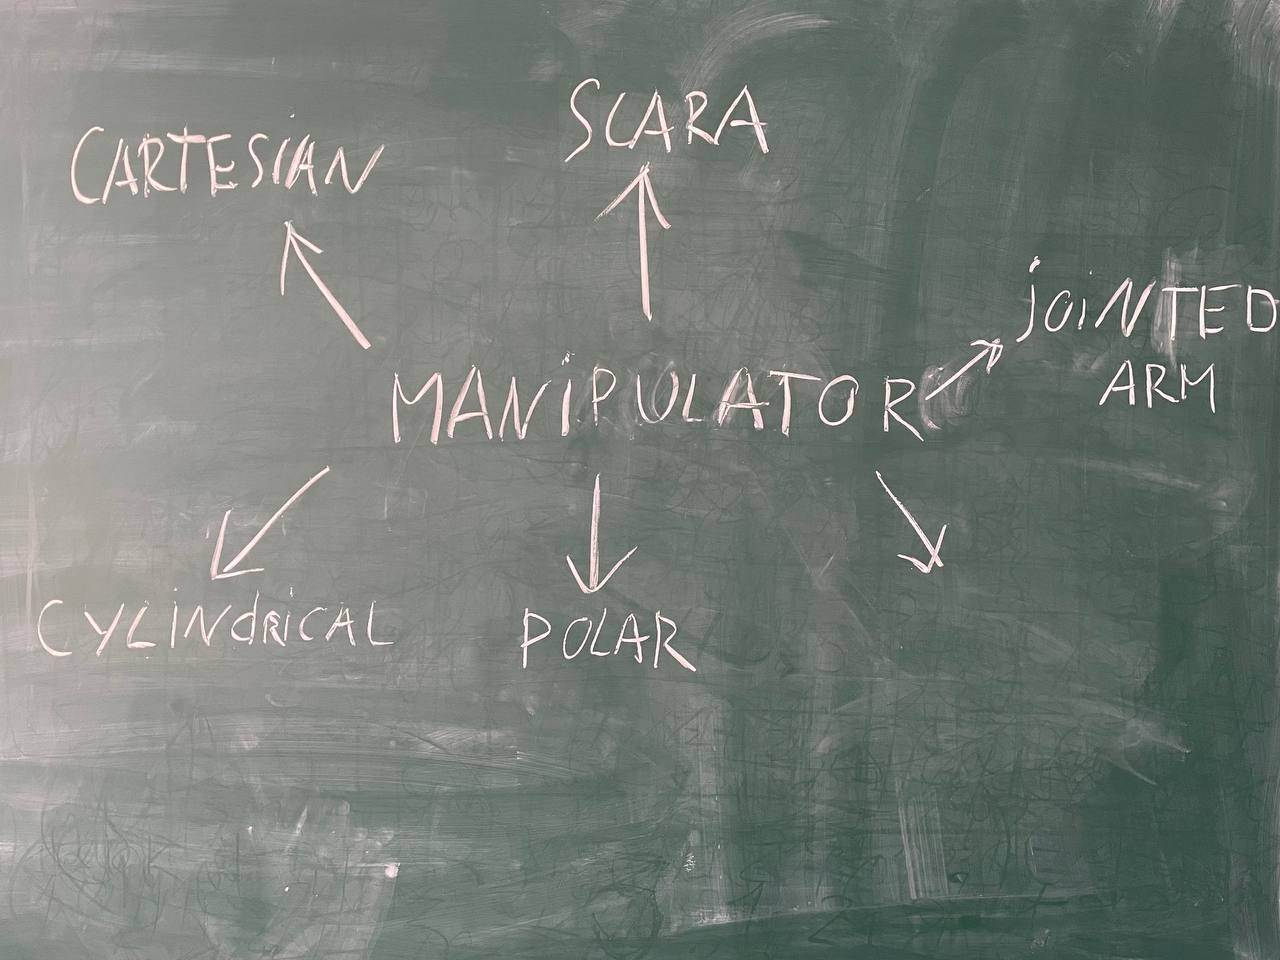 SCARA
CARTESiAN
jOiNTED
ARM
MANiPULATOR
CYLiNdRiCAL
POLAR